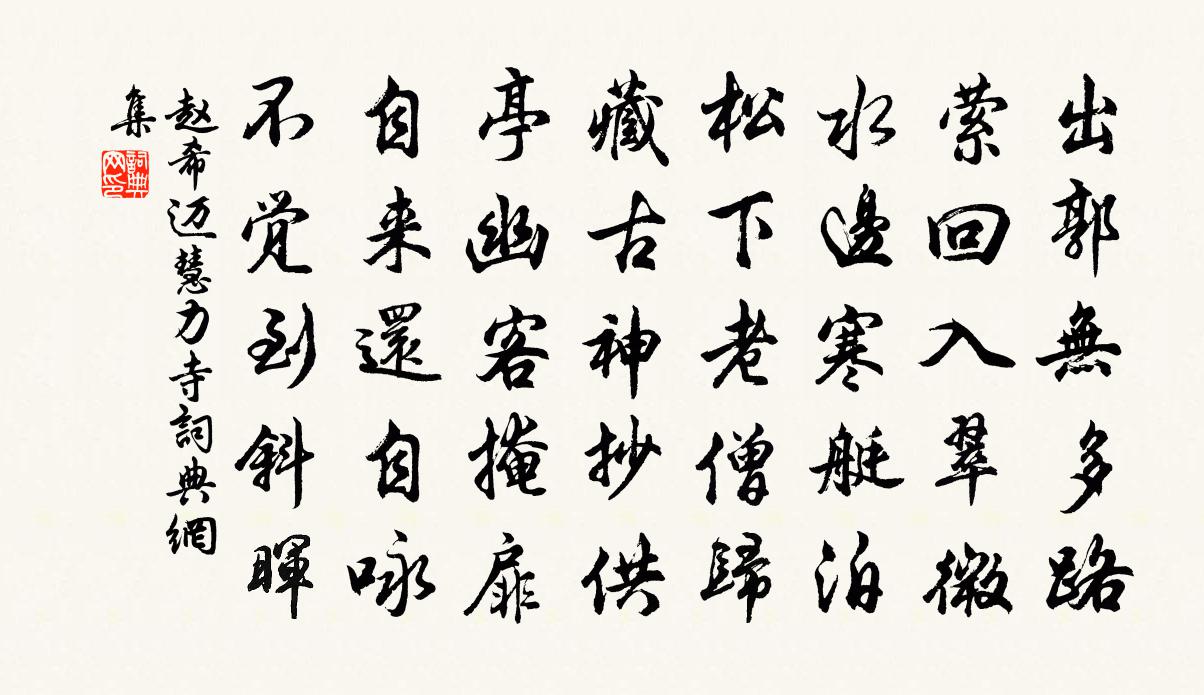 出郭無多路
萦回入翠微
水邊寒艇泊
松下老僧歸
藏古神抄供
亭幽客掩扉
自来還自咏
不觉到斜暉
赵希迈慧力寺詞典網
集
詞典
网印